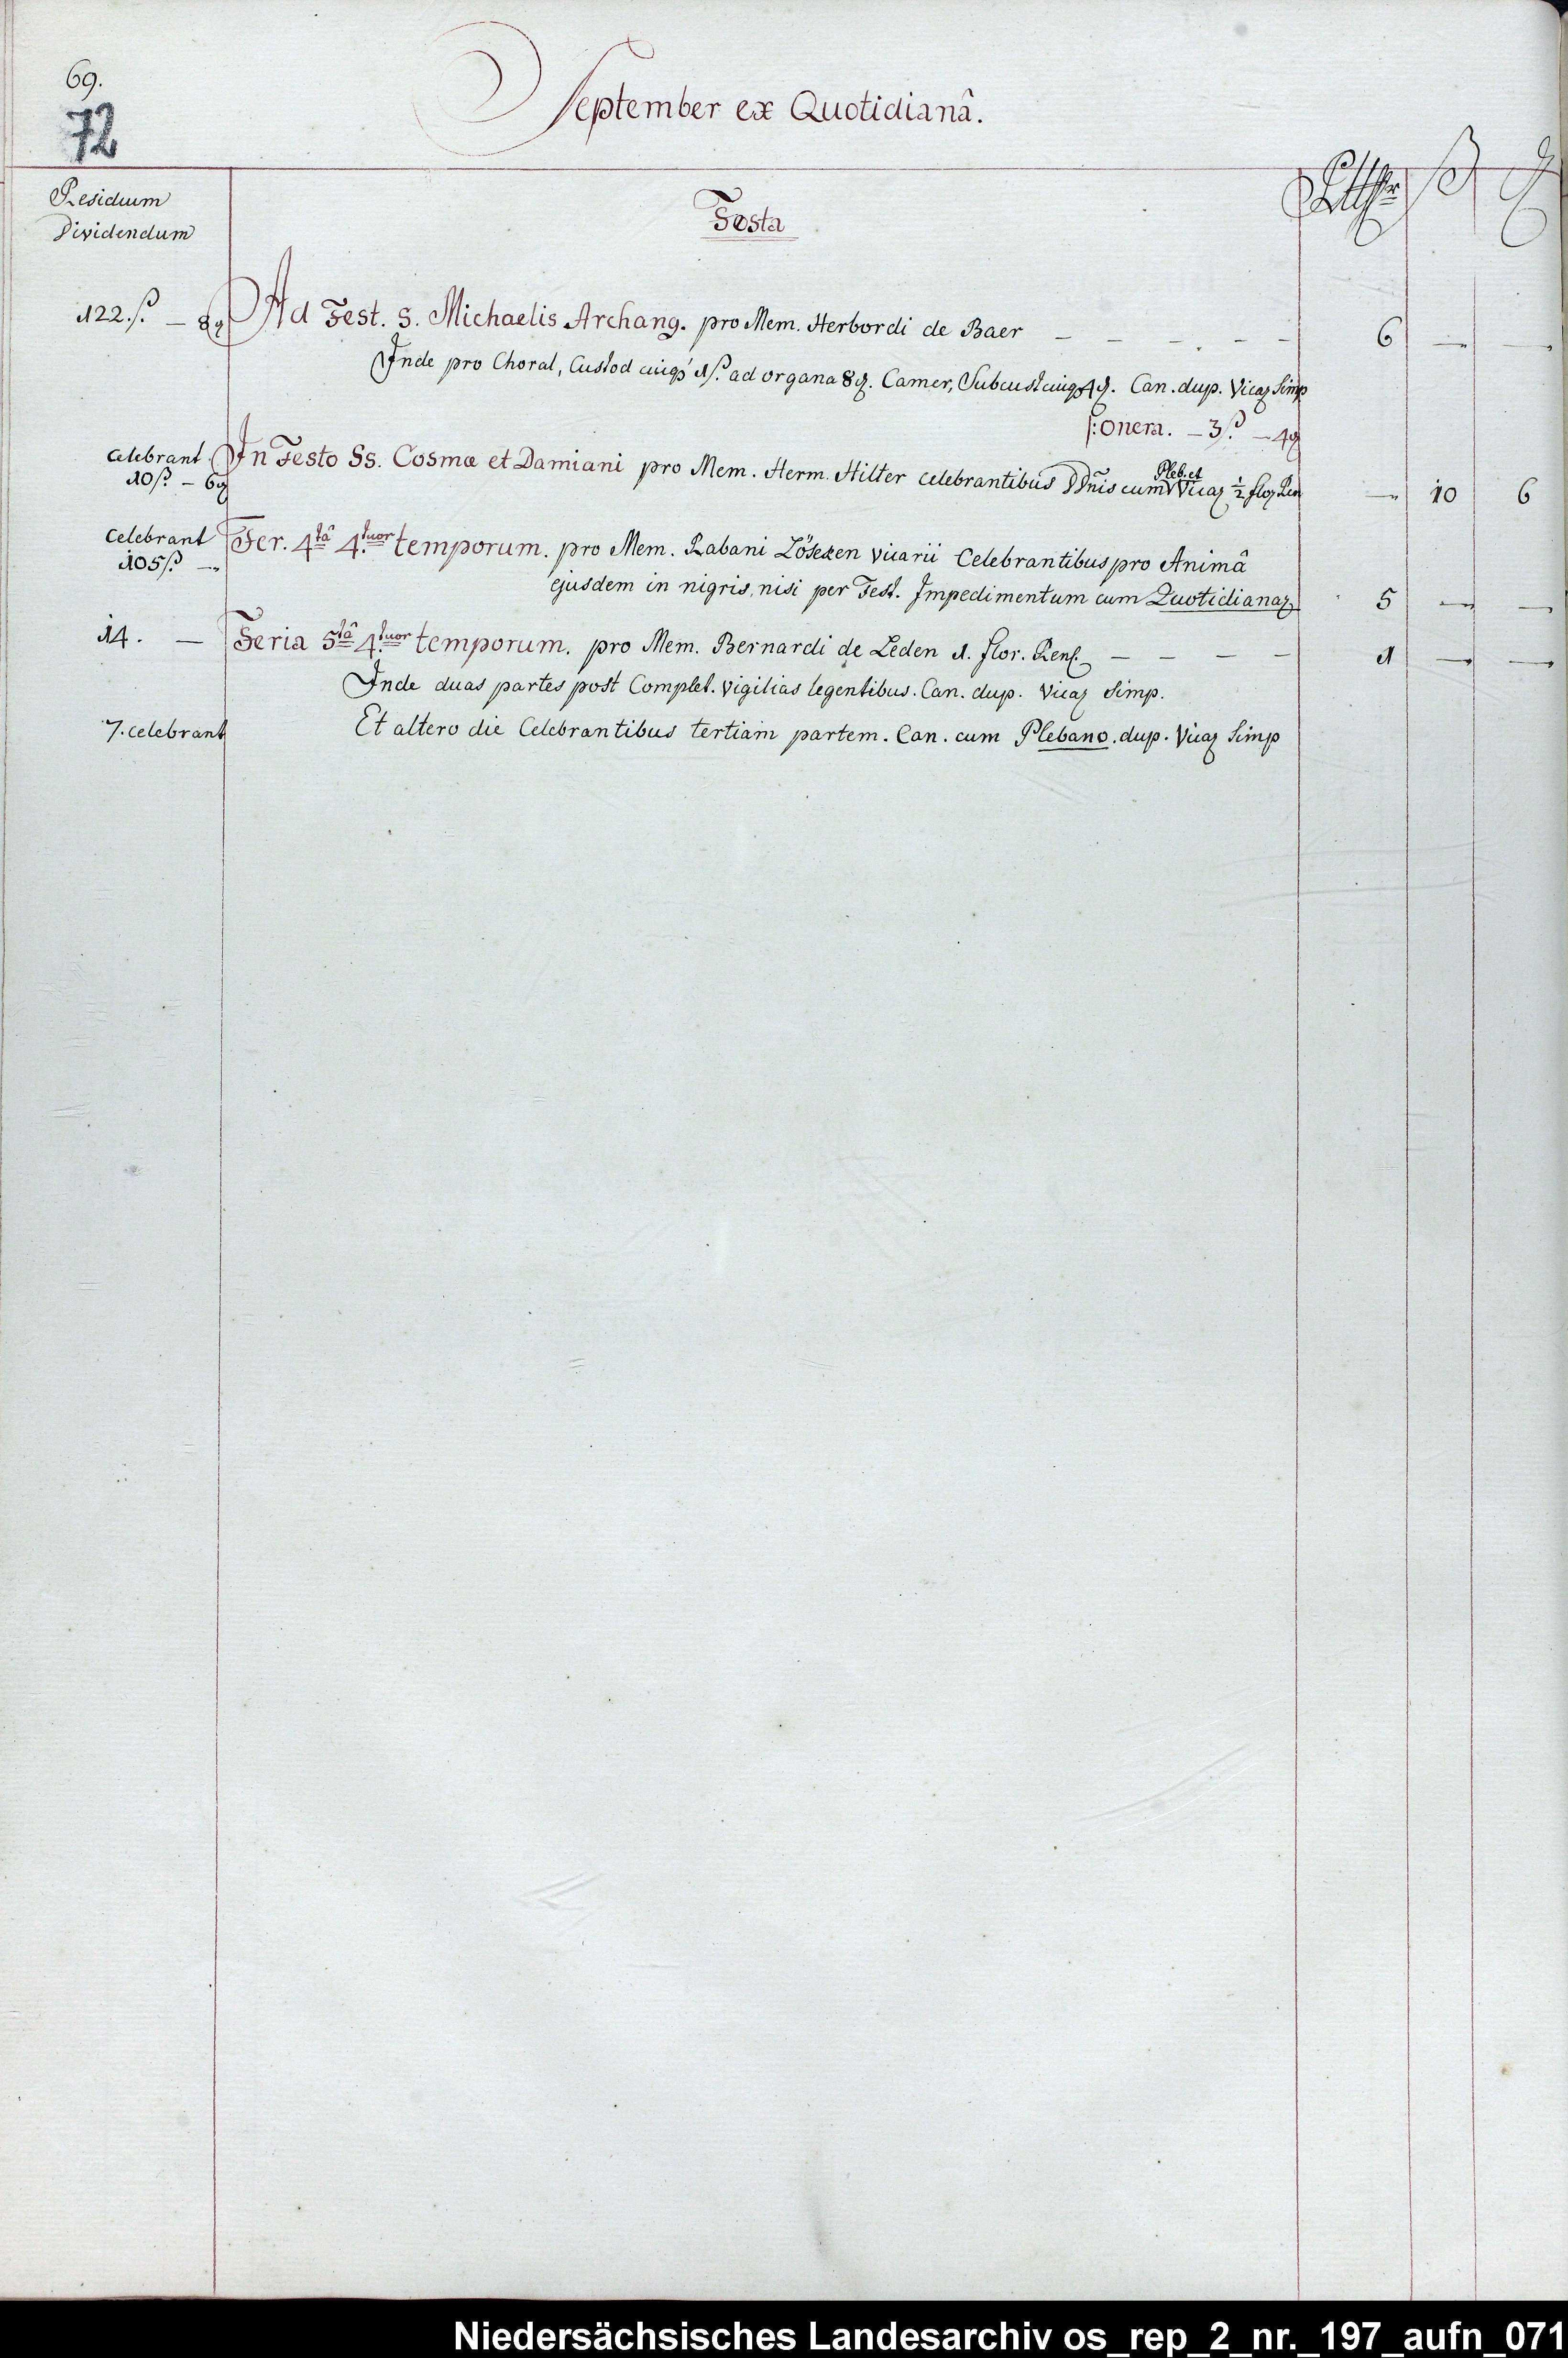 69.
72
September ex Quotidianâ.
Residuum
Dividendum
Festa
Rthlr ß ₰
122.ß. — 8₰ Ad Fest. S. Michaelis Archang. pro Mem. Herbordi de Baer — — — — — 6 — —
Inde pro Choral, Custod cuiq' 1ß. ad organa 8₰. Camer, Subcust cuiq 4₰. Can. dup. Vicaꝝ Simp
|: onera. — 3ß. — 4₰
celebrant In Festo Ss. Cosmæ et Damiani pro Mem. Herm. Hilter celebrantibus DDn̄is cum Pleb. et Vicaꝝ ½ floꝝ Ren — 10 6
10ß. — 6₰
celebrant Fer. 4tâ 4.tuor temporum. pro Mem. Rabani Lösezen vicarii Celebrantibus pro Animâ
105ß. —
ejusdem in nigris, nisi per Fest. Impedimentum cum Quotidianaꝝ 5 — —
14. — Feria 5tâ 4.tuor temporum. pro Mem. Bernardi de Leden 1. flor. Rens. — — — — 1 — —
Inde duas partes post Complet. vigilias legentibus. Can. dup. Vicaꝝ Simp.
7. celebrant Et altero die Celebrantibus tertiam partem. Can. cum Plebano. dup. Vicaꝝ Simp
Niedersächsisches Landesarchiv os_rep_2_nr._197_aufn_071